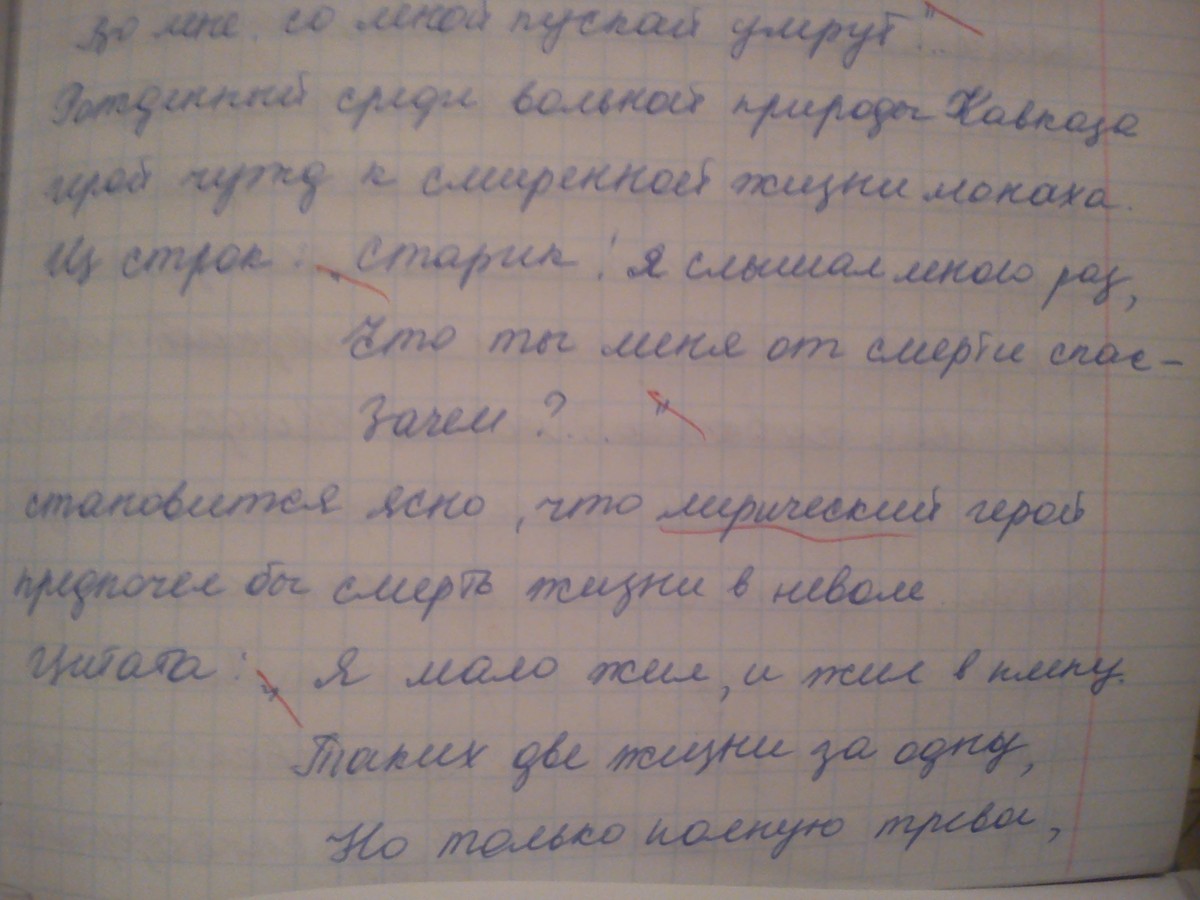 во мне, со мной пускай умрут"...
Рожденный среди вольной природы Кавказа
герой чужд к смиренной жизни монаха.
Из строк: „Старик! я слышал много раз,
Что ты меня от смерти спас –
Зачем?.. "
становится ясно, что лирический герой
предпочел бы смерть жизни в неволе
Цитата: „Я мало жил, и жил в плену.
Таких две жизни за одну,
Но только полную тревог,